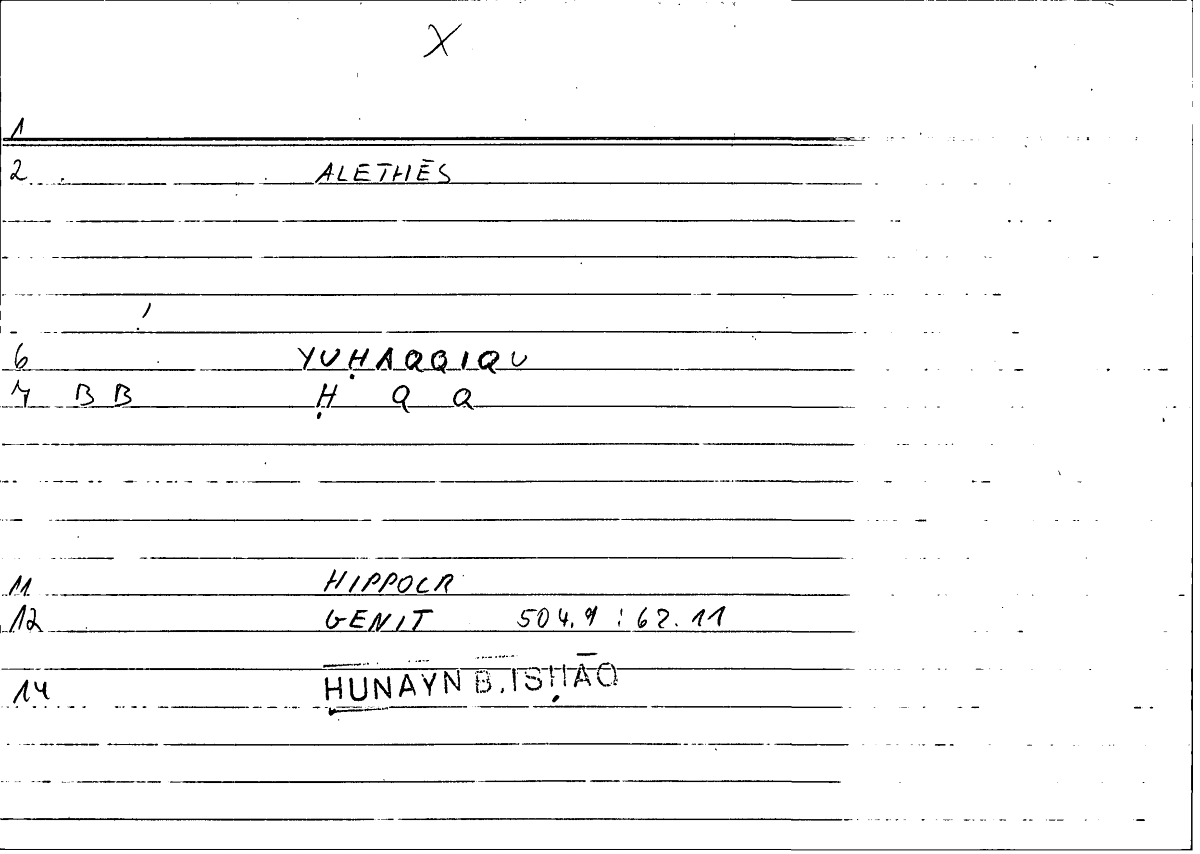 X
1
2 ALETHĒS
6 YUḤAQQIQU
7 BB Ḥ Q Q
11 HIPPOCR
12 GENIT 504.9 : 62.11
14 ḤUNAYN B. ISḤĀQ